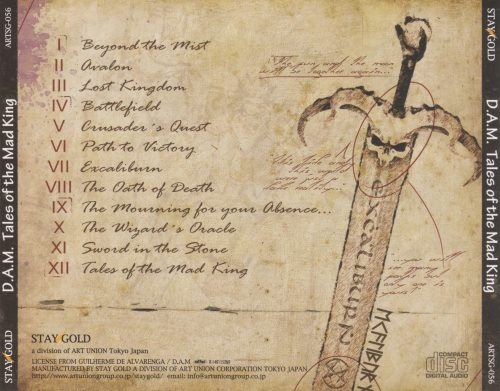 ARTSG-056
STAY GOLD
D.A.M. Tales of the Mad King
STAY GOLD
D.A.M. Tales of the Mad King
ARTSG-056
I Beyond the Mist
II Avalon
III Lost Kingdom
IV Battlefield
V Crusader's Quest
VI Path to Victory
VII Excaliburn
VIII The Oath of Death
IX The Mourning for your Absence...
X The Wizard's Oracle
XI Sword in the Stone
XII Tales of the Mad King
excaliburn
STAY GOLD
a division of ART UNION Tokyo Japan
LICENSE FROM GUILHERME DE ALVARENGA / D.A.M
MANUFACTURED BY STAY GOLD A DIVISION OF ART UNION CORPORATION TOKYO JAPAN
http://www.artuniongroup.co.jp/staygold/ email: info@artuniongroup.co.jp
COMPACT
disc
DIGITAL AUDIO